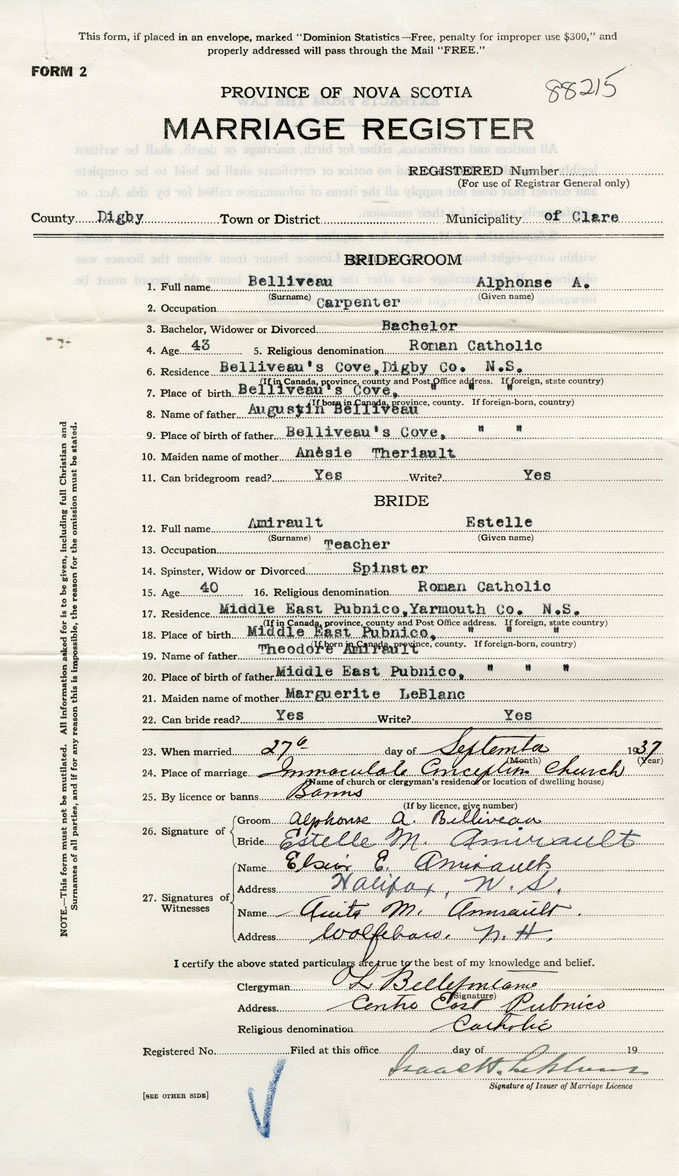 This form, if placed in an envelope, marked "Dominion Statistics—Free, penalty for improper use $300," and
properly addressed will pass through the Mail "FREE."
FORM 2
88215
PROVINCE OF NOVA SCOTIA
MARRIAGE REGISTER
REGISTERED Number
(For use of Registrar General only)
County Digby Town or District Municipality of Clare
BRIDEGROOM
1. Full name Belliveau Alphonse A.
(Surname) (Given name)
2. Occupation Carpenter
3. Bachelor, Widower or Divorced Bachelor
4. Age 43 5. Religious denomination Roman Catholic
6. Residence Belliveau's Cove, Digby Co. N.S.
(If in Canada, province, county and Post Office address. If foreign, state country)
7. Place of birth Belliveau's Cove, " " "
(If born in Canada, province, county. If foreign-born, country)
8. Name of father Augustin Belliveau
9. Place of birth of father Belliveau's Cove, " "
10. Maiden name of mother Anèsie Theriault
11. Can bridegroom read? Yes Write? Yes
BRIDE
12. Full name Amirault Estelle
(Surname) (Given name)
13. Occupation Teacher
14. Spinster, Widow or Divorced Spinster
15. Age 40 16. Religious denomination Roman Catholic
17. Residence Middle East Pubnico, Yarmouth Co. N.S.
(If in Canada, province, county and Post Office address. If foreign, state country)
18. Place of birth Middle East Pubnico, " " "
(If born in Canada, province, county. If foreign-born, country)
19. Name of father Theodore Amirault
20. Place of birth of father Middle East Pubnico, " " "
21. Maiden name of mother Marguerite LeBlanc
22. Can bride read? Yes Write? Yes
23. When married 27 day of September 1937
(Month) (Year)
24. Place of marriage Immaculate Conception Church
(Name of church or clergyman's residence or location of dwelling house)
25. By licence or banns Banns
(If by licence, give number)
26. Signature of
Groom Alphonse A. Belliveau
Bride Estelle M. Amirault
27. Signatures of Witnesses
Name E. Amirault
Address Halifax, N.S.
Name Anita M. Amirault.
Address Wolfeboro, N.H.
I certify the above stated particulars are true to the best of my knowledge and belief.
Clergyman Bellefontaine
(Signature)
Address Centre East Pubnico
Religious denomination Catholic
Registered No. Filed at this office day of 19
Isaac H.
Signature of Issuer of Marriage Licence
[SEE OTHER SIDE]
NOTE.—This form must not be mutilated. All information asked for is to be given, including full Christian and
Surnames of all parties, and if for any reason this is impossible, the reason for the omission must be stated.